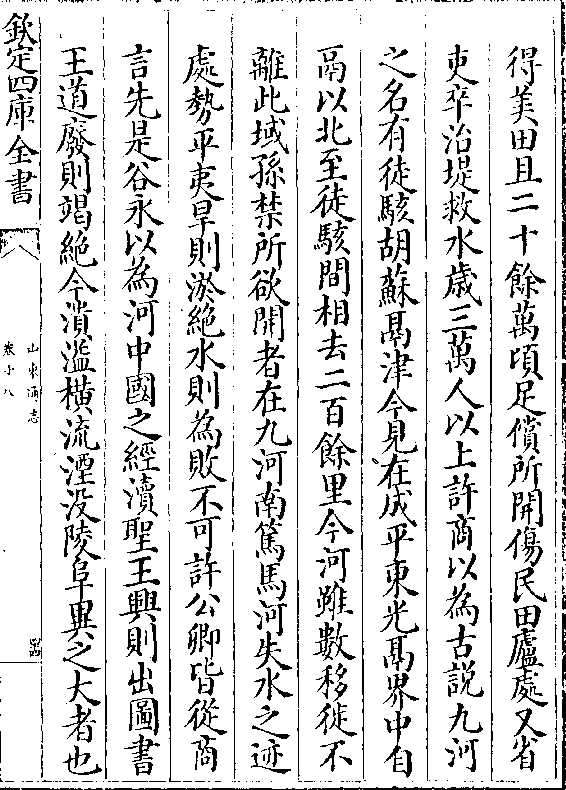 得美田且二十餘萬頃足償所開傷民田廬處又省
吏卒治堤救水歲三萬人以上許商以為古說九河
之名有徒駭胡蘇鬲津今見在成平東光鬲界中自
鬲以北至徒駭間相去二百餘里今河雖數移徙不
離此域孫禁所欲開者在九河南篤馬河失水之迹
處勢平夷旱則淤絕水則為敗不可許公卿皆從商
言先是谷永以為河中國之經瀆聖王興則出圖書
王道廢則竭絕今潰溢橫流湮沒陵阜異之大者也
欽定四庫全書
山東通志
卷十八